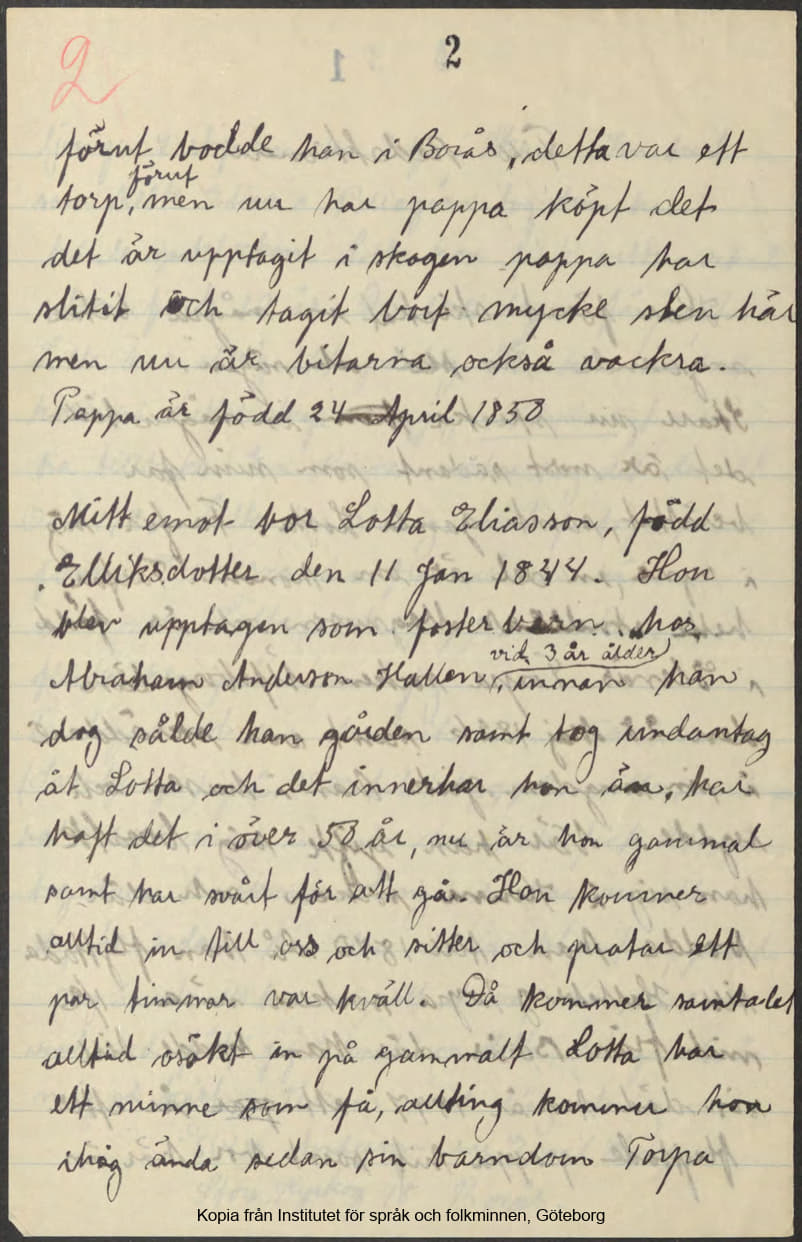 2
2
förut bodde han i Borås, detta var ett
förut
torp, men nu har pappa köpt det
det är upptagit i skogen pappa har
slitit och tagit bort mycke sten här
men nu är bitarna också vackra.
Pappa är född 24 April 1858
Mitt emot bor Lotta Eliasson, född
Elliksdotter den 11 Jan 1844. Hon
blev upptagen som fosterbarn hos
vid 3 år ålder
Abraham Anderson Hallen, innan han
dog sålde han gården samt tog undantag
åt Lotta och det innerhar hon än, har
haft det i över 50 år, nu är hon gammal
samt har svårt för att gå. Hon kommer
alltid in till oss och sitter och pratar ett
par timmar var kväll. Då kommer samtalet
alltid osökt in på gammalt Lotta har
ett minne som få, allting kommer hon
ihåg ända sedan sin barndom Torpa
Kopia från Institutet för språk och folkminnen, Göteborg